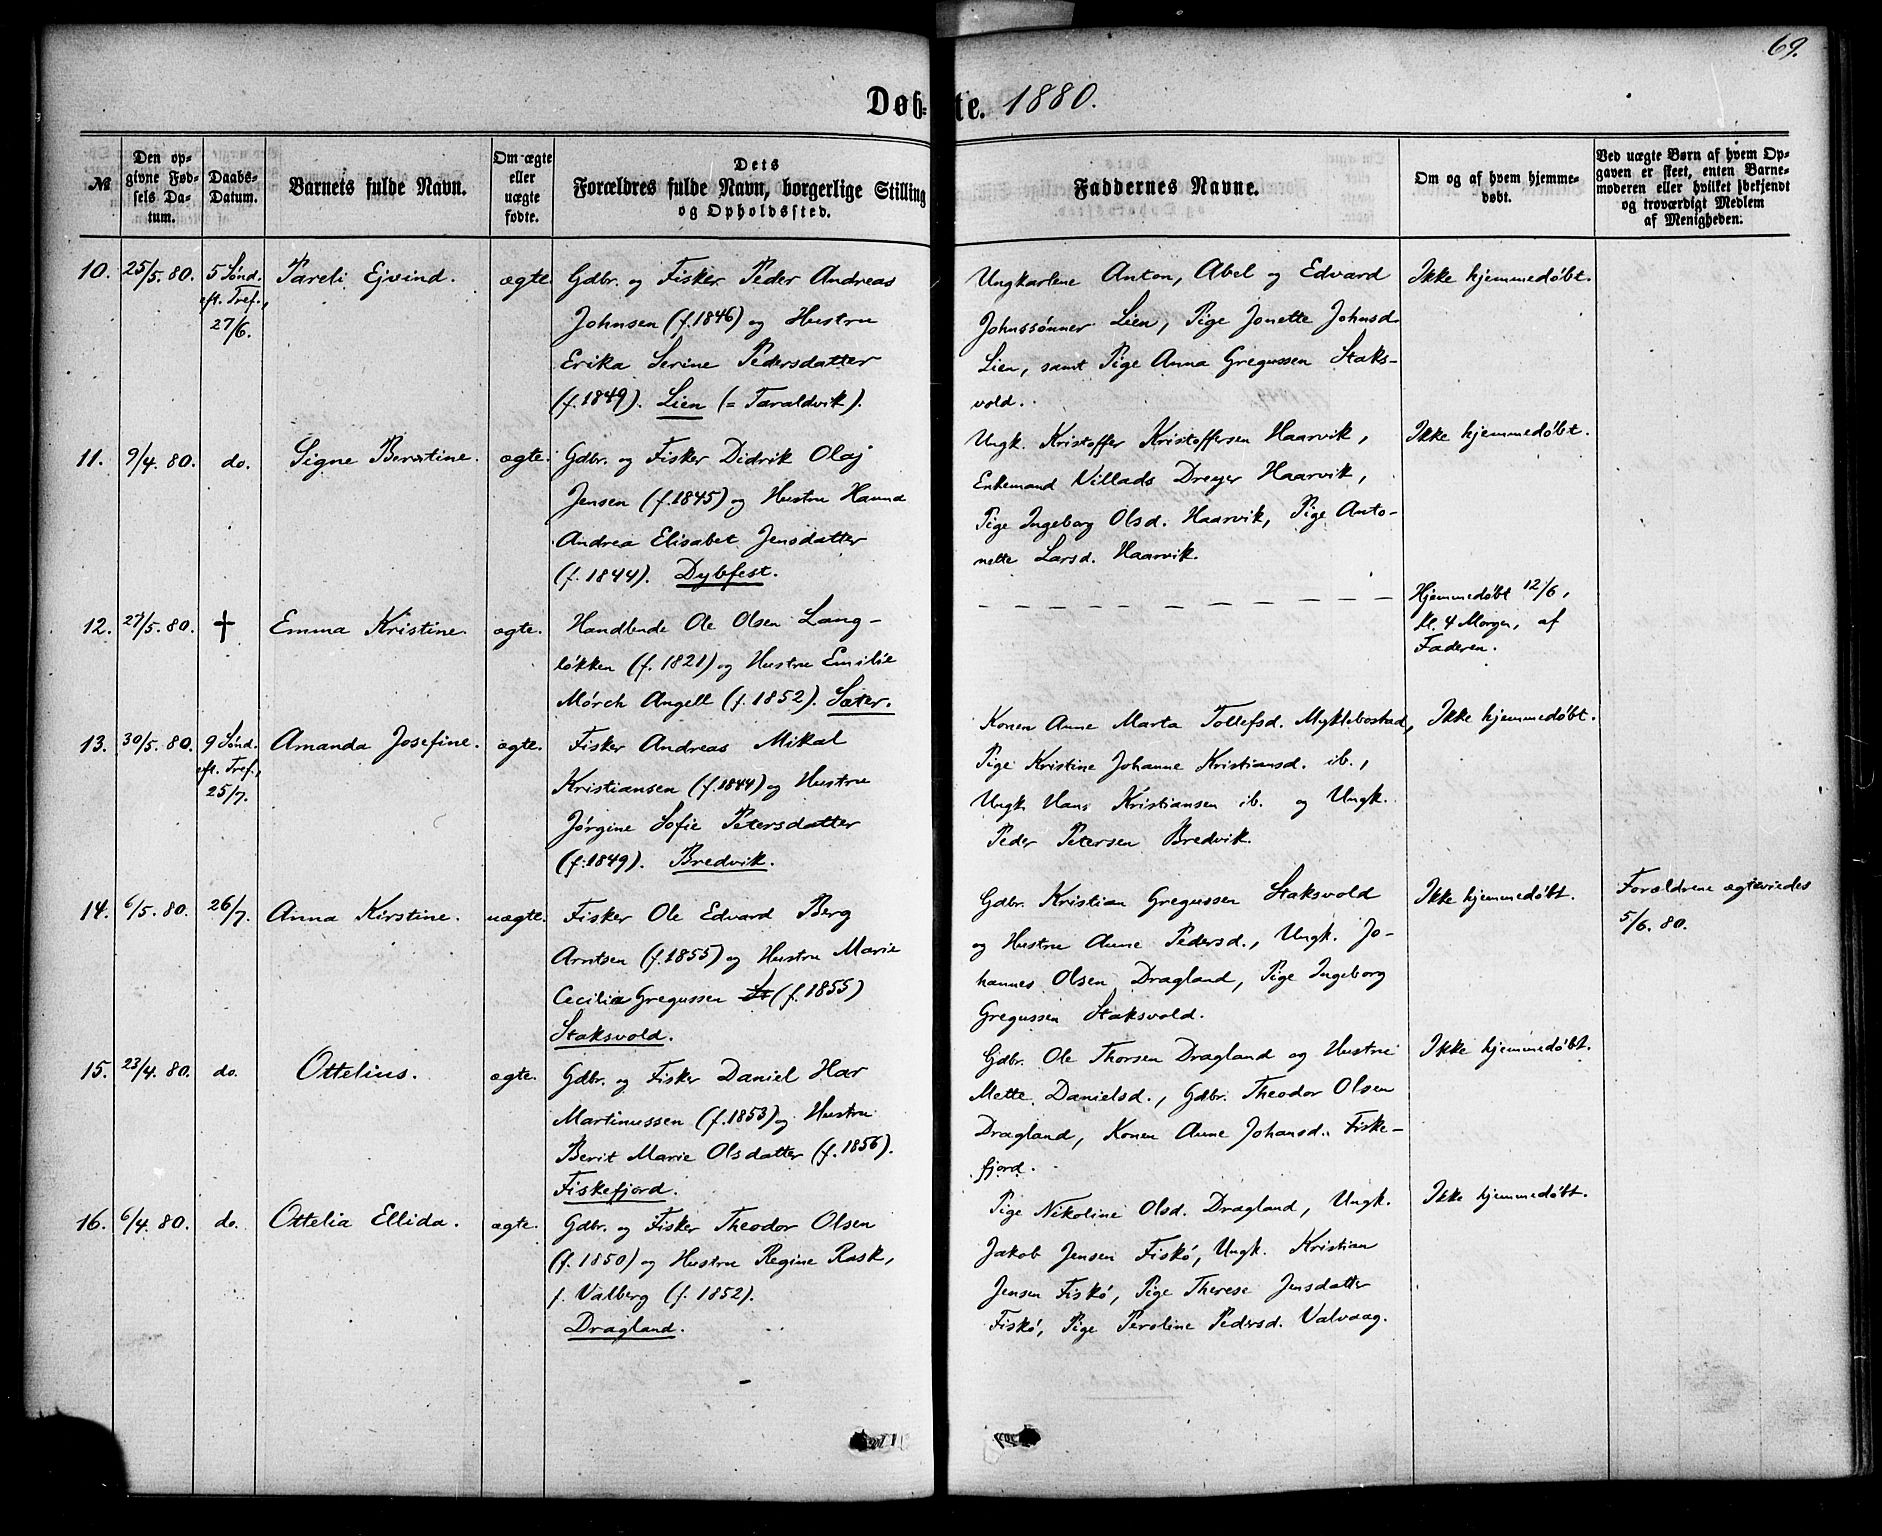 69.
Døb=te. 1880.
№
Den op-
givne Fød-
sels Da-
tum.
Daabs-
Datum.
Barnets fulde Navn.
Om ægte
eller
uægte
fødte.
Dets
Forældres fulde Navn, borgerlige Stilling
og Opholdssted.
Faddernes Navne.
Om og af hvem hjemme-
døbt.
Ved uægte Børn af hvem Op-
gaven er skeet, enten Barne-
moderen eller hvilket bekjendt
og troværdigt Medlem
af Menigheden.
10. 25/5. 80. 5 Sønd.
eft. Tref.,
27/6.
Pareli Ejvind. ægte.
Gdbr. og Fisker Peder Andreas
Johnsen (f. 1846) og Hustru
Erika Serine Pedersdatter
(f. 1849). Lien (= Taraldvik).
Ungkarlene Anton, Abel og Edvard
Johnssønner Lien, Pige Jonette Johnsd.
Lien, samt Pige Anna Gregussen Staks-
vold.
Ikke hjemmedøbt.
11. 9/4. 80. do. Signe Berntine. ægte.
Gdbr. og Fisker Didrik Olaj
Jensen (f. 1845) og Hustru Hanna
Andrea Elisabet Jensdatter
(f. 1844). Dybfest.
Ungk. Kristoffer Kristoffersen Haarvik,
Enkemand Villads Dreyer Haarvik,
Pige Ingeborg Olsd. Haarvik, Pige Anto-
nette Larsd. Haarvik.
Ikke hjemmedøbt.
12. 27/5. 80. † Emma Kristine. ægte.
Handlende Ole Olsen Lang-
løkken (f. 1821) og Hustru Emilie
Mørch Angell (f. 1852). Sæter.
— — — — — — — — — — — —
Hjemmedøbt 12/6,
kl. 4 Morgen, af
Faderen.
13. 30/5. 80. 9 Sønd.
eft. Tref.,
25/7.
Amanda Josefine. ægte.
Fisker Andreas Mikal
Kristiansen (f. 1844) og Hustru
Jørgine Sofie Petersdatter
(f. 1849). Bredvik.
Konen Anne Marta Tollefsd. Myklebostad,
Pige Kristine Johanne Kristiansd. ib.,
Ungk. Hans Kristiansen ib. og Ungk.
Peder Petersen Bredvik.
Ikke hjemmedøbt.
14. 6/5. 80. 26/7. Anna Kirstine. uægte.
Fisker Ole Edvard Berg
Arntsen (f. 1855) og Hustru Marie
Cecilia Gregussen St (f. 1855)
Staksvold.
Gdbr. Kristian Gregussen Staksvold
og Hustru Anne Pedersd., Ungk. Jo-
hannes Olsen Dragland, Pige Ingeborg
Gregussen Staksvold.
Ikke hjemmedøbt.
Forældrene ægteviedes
5/6. 80.
15. 23/4. 80. do. Ottelius. ægte.
Gdbr. og Fisker Daniel Har
Martinussen (f. 1853) og Hustru
Berit Marie Olsdatter (f. 1856).
Fiskefjord.
Gdbr. Ole Thorsen Dragland og Hustru
Mette Danielsd., Gdbr. Theodor Olsen
Dragland, Konen Anne Johansd. Fiske-
fjord.
Ikke hjemmedøbt.
16. 6/4. 80. do. Ottelia Ellida. ægte.
Gdbr. og Fisker Theodor Olsen
(f. 1850) og Hustru Regine Rask,
f. Valberg (f. 1852).
Dragland.
Pige Nikoline Olsd. Dragland, Ungk.
Jakob Jensen Fiskø, Ungk. Kristian
Jensen Fiskø, Pige Therese Jensdatter
Fiskø, Pige Peroline Pedersd. Valvaag.
Ikke hjemmedøbt.